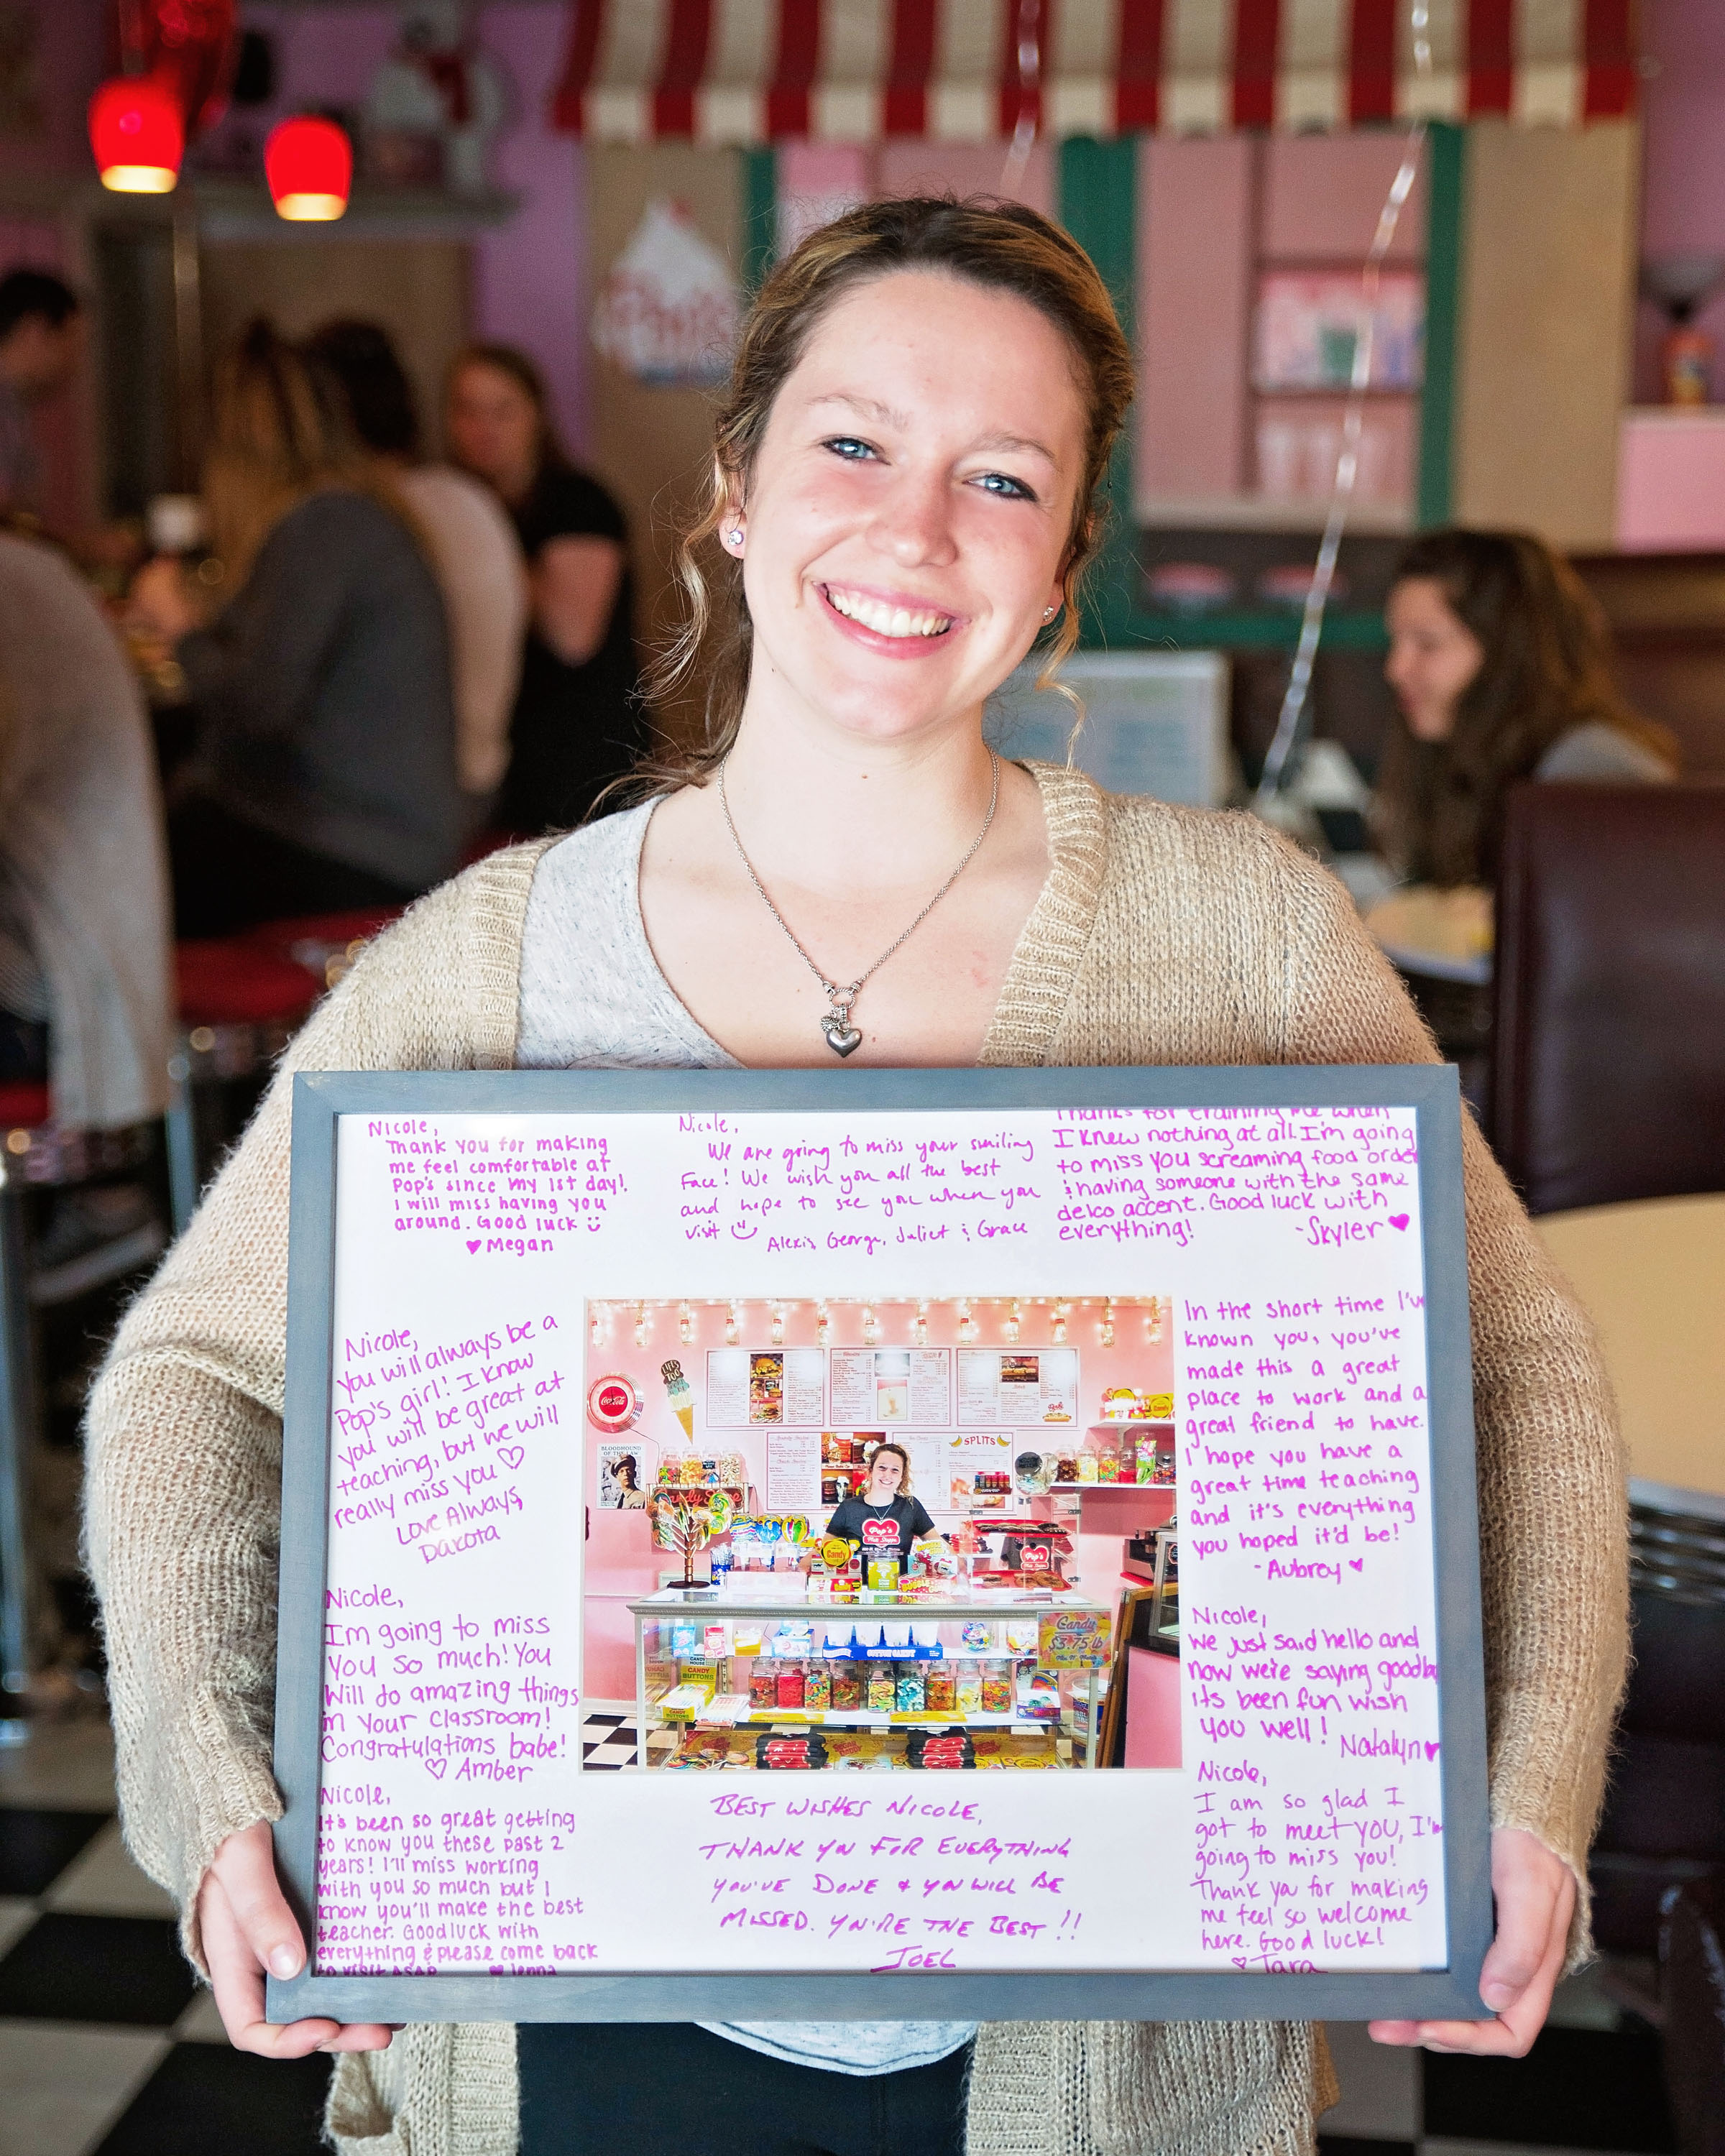 Nicole,
Thank you for making
me feel comfortable at
Pop's since my 1st day!.
I will miss having you
around. Good luck ü
♥ Megan
Nicole,
We are going to miss your smiling
Face! We wish you all the best
and hope to see you when you
visit
Alexis, George, Juliet & Grace
Thanks for training me when
I knew nothing at all. I'm going
to miss you screaming food order
& having someone with the same
delco accent. Good luck with
everything!
-Skyler ♥
Nicole,
You will always be a
Pop's girl! I know
you will be great at
teaching, but we will
really miss you ♡
Love Always,
Dakota
Nicole,
I'm going to miss
You so much! You
Will do amazing things
in your classroom!
Congratulations babe!
♡ Amber
Nicole,
It's been so great getting
to know you these past 2
years! I'll miss working
with you so much but I
know you'll make the best
teacher. Good luck with
everything & please come back
to visit ASAP ♥ Jenna
In the short time I've
known you, you've
made this a great
place to work and a
great friend to have.
I hope you have a
great time teaching
and it's everything
you hoped it'd be!
- Aubrey ♥
Nicole,
We just said hello and
now we're saying goodb
its been fun wish
you well!
Natalyn ♥
Nicole,
I am so glad I
got to meet you, I'm
going to miss you!
Thank you for making
me feel so welcome
here. Good luck!
♡ Tara
BEST WISHES NICOLE,
THANK YOU FOR EVERYTHING
YOU'VE DONE & YOU WILL BE
MISSED. YOU'RE THE BEST!!
JOEL
Coca-Cola
BLOODHOUND
OF THE LAW
SPLITS
Candy
Pop's
Pop's
COTTON CANDY
CANDY
BUTTONS
Candy
$3.75 lb